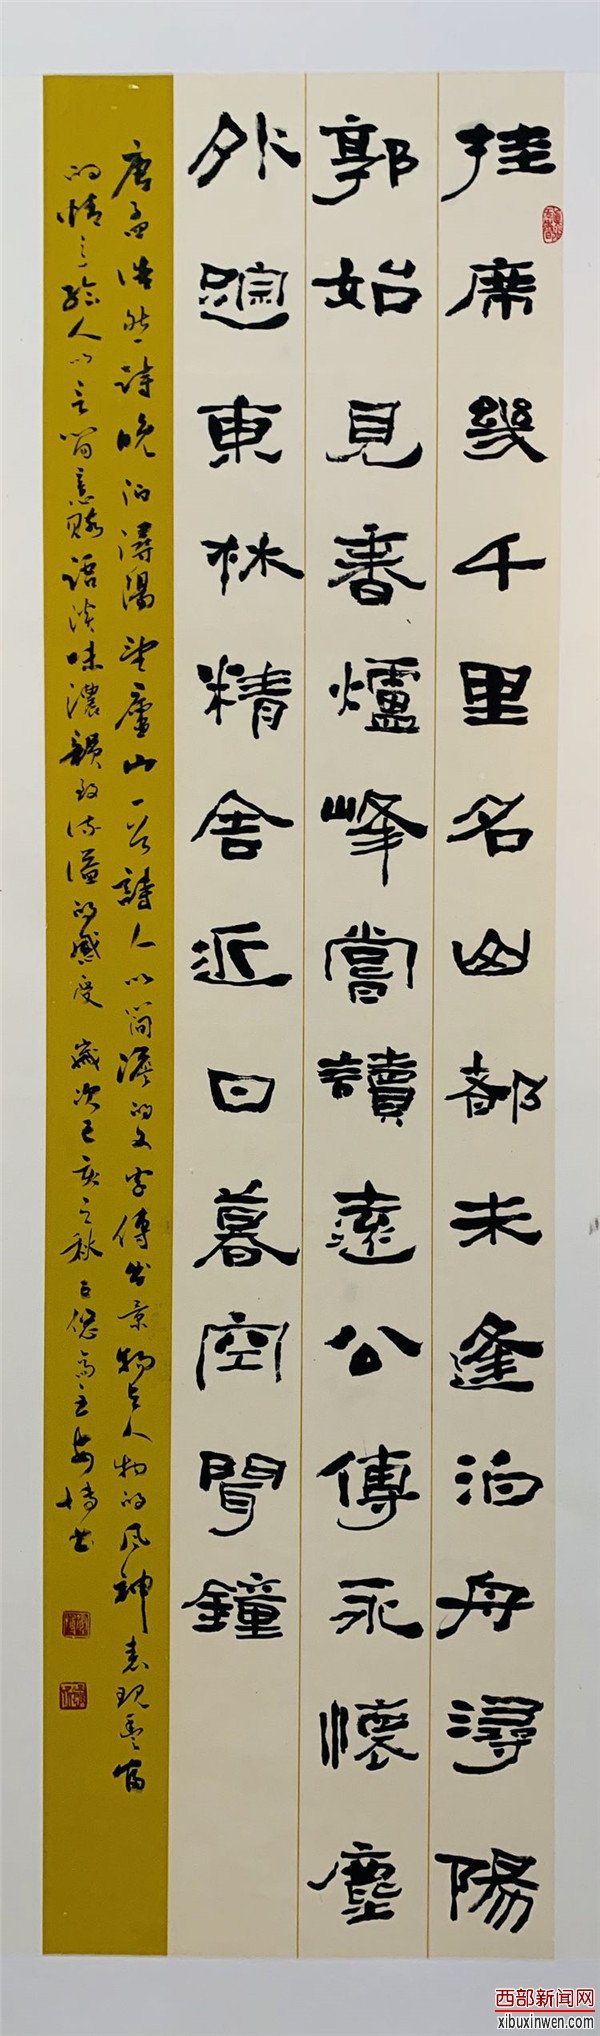 挂席幾千里名山都未逢泊舟潯陽
郭始見香爐峰嘗讀遠公傳永懷塵
外蹤東林精舍近日暮空聞鐘
唐孟浩然詩晚泊潯陽望廬山一首詩人以簡淡的文字傳出景物与人物的风神表现豐富
的情意給人以言简意赅語淡味濃韻致流溢的感受 歲次己亥之秋
西部新闻网
xibuxinwen.com